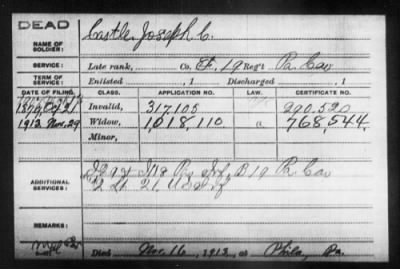 DEAD
NAME OF SOLDIER:
Castle, Joseph C.
SERVICE:
Late rank, Co. F. 19 Reg't Pa. Cav
TERM OF SERVICE:
Enlisted , 1 Discharged , 1
DATE OF FILING. CLASS. APPLICATION NO. LAW. CERTIFICATE NO.
1879, Invalid, 317105 290.520
1913. Nov. 29 Widow, 1,018,110 a 768,544.
Minor,
ADDITIONAL SERVICES:
118 Pa Inf, B 19 Pa Cav
2 Lt. 21, U.S. Inf
REMARKS:
Died Nov. 16, 1913, at Phila, Pa.